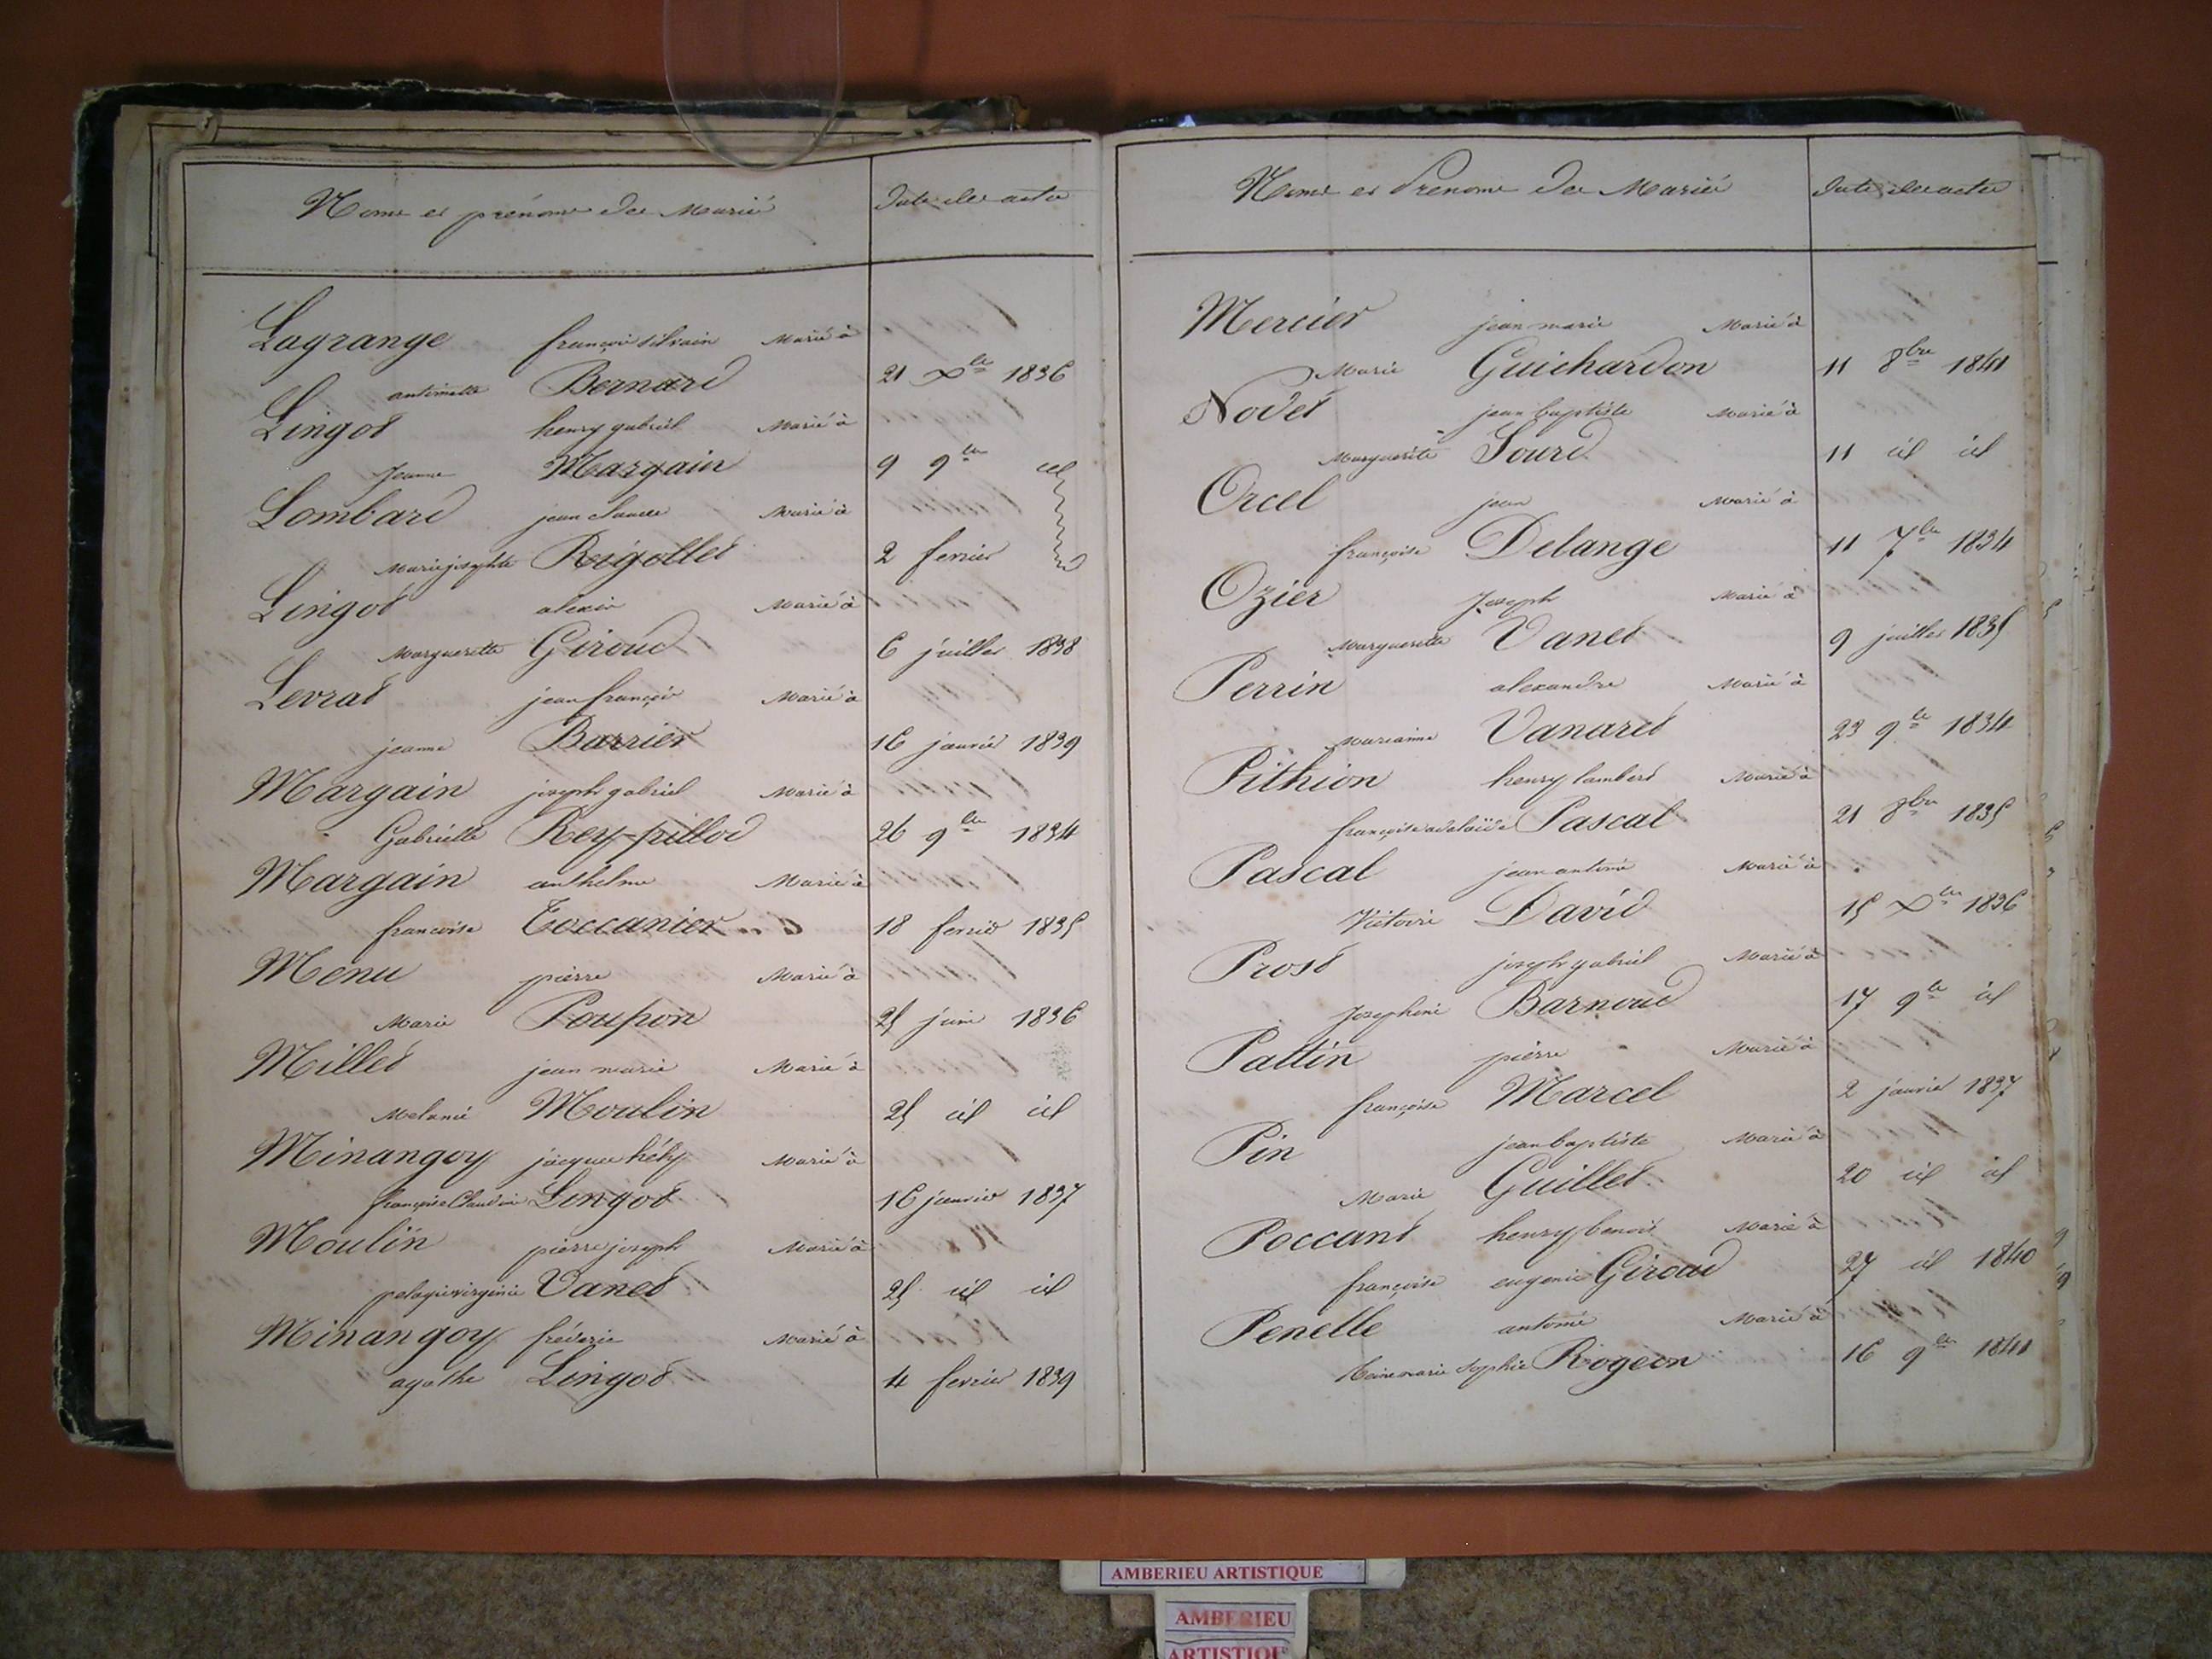 Noms et prénoms des Mariés Date des actes
Lagrange françois silvain Marié à
antoinette Bernard 21 Xbre 1836
Lingot henry gabriel Marié à
Jeanne Margain 9 9bre id
Lombard jean claude Marié à
Marie josephte Rigollet 2 fevrier
Lingot alexis Marié à
Marguerite Giroud 6 juillet 1838
Levrat jean françois Marié à
jeanne Barrier 16 janvier 1839
Margain joseph gabriel Marié à
Gabrielle Rey-pillod 26 9bre 1834
Margain anthelme Marié à
françoise Toccanier 18 fevrier 1835
Menu pierre Marié à
Marie Poupon 25 juin 1836
Millet jean marie Marié à
Melanie Moulin 25 id id
Minangoy jacques hély Marié à
françoise Claudine Lingot 16 janvier 1837
Moulin pierre joseph Marié à
pelagie virginie Vanet 25 id id
Minangoy fréderic Marié à
agathe Lingot 4 fevrier 1839
Noms et Prenoms des Mariés Date des actes
Mercier jean marie Marié à
Marie Guichardon 11 8bre 1841
Nodet jean baptiste Marié à
Marguerite Sourd 11 id id
Orcel jean Marié à
françoise Delange 11 7bre 1834
Ozier Joseph Marié à
Marguerite Vanet 9 juillet 1835
Perrin alexandre Marié à
Marianne Vanaret 23 9bre 1834
Pithion henry lambert Marié à
françoise adelaïde Pascal 21 8bre 1835
Pascal jean antoine Marié à
Victoire David 15 Xbre 1836
Prost joseph gabriel Marié à
Josephine Barnoud 17 9bre id
Pattin pierre Marié à
françoise Marcel 2 janvier 1837
Pin jean baptiste Marié à
Marie Guillet 20 id id
Poccant henry benoit Marié à
françoise eugenie Giroud 27 id 1840
Penelle antoine Marié à
Reine marie sophie Rogeon 16 9bre 1841
AMBERIEU ARTISTIQUE
AMBERIEU
ARTISTIQUE